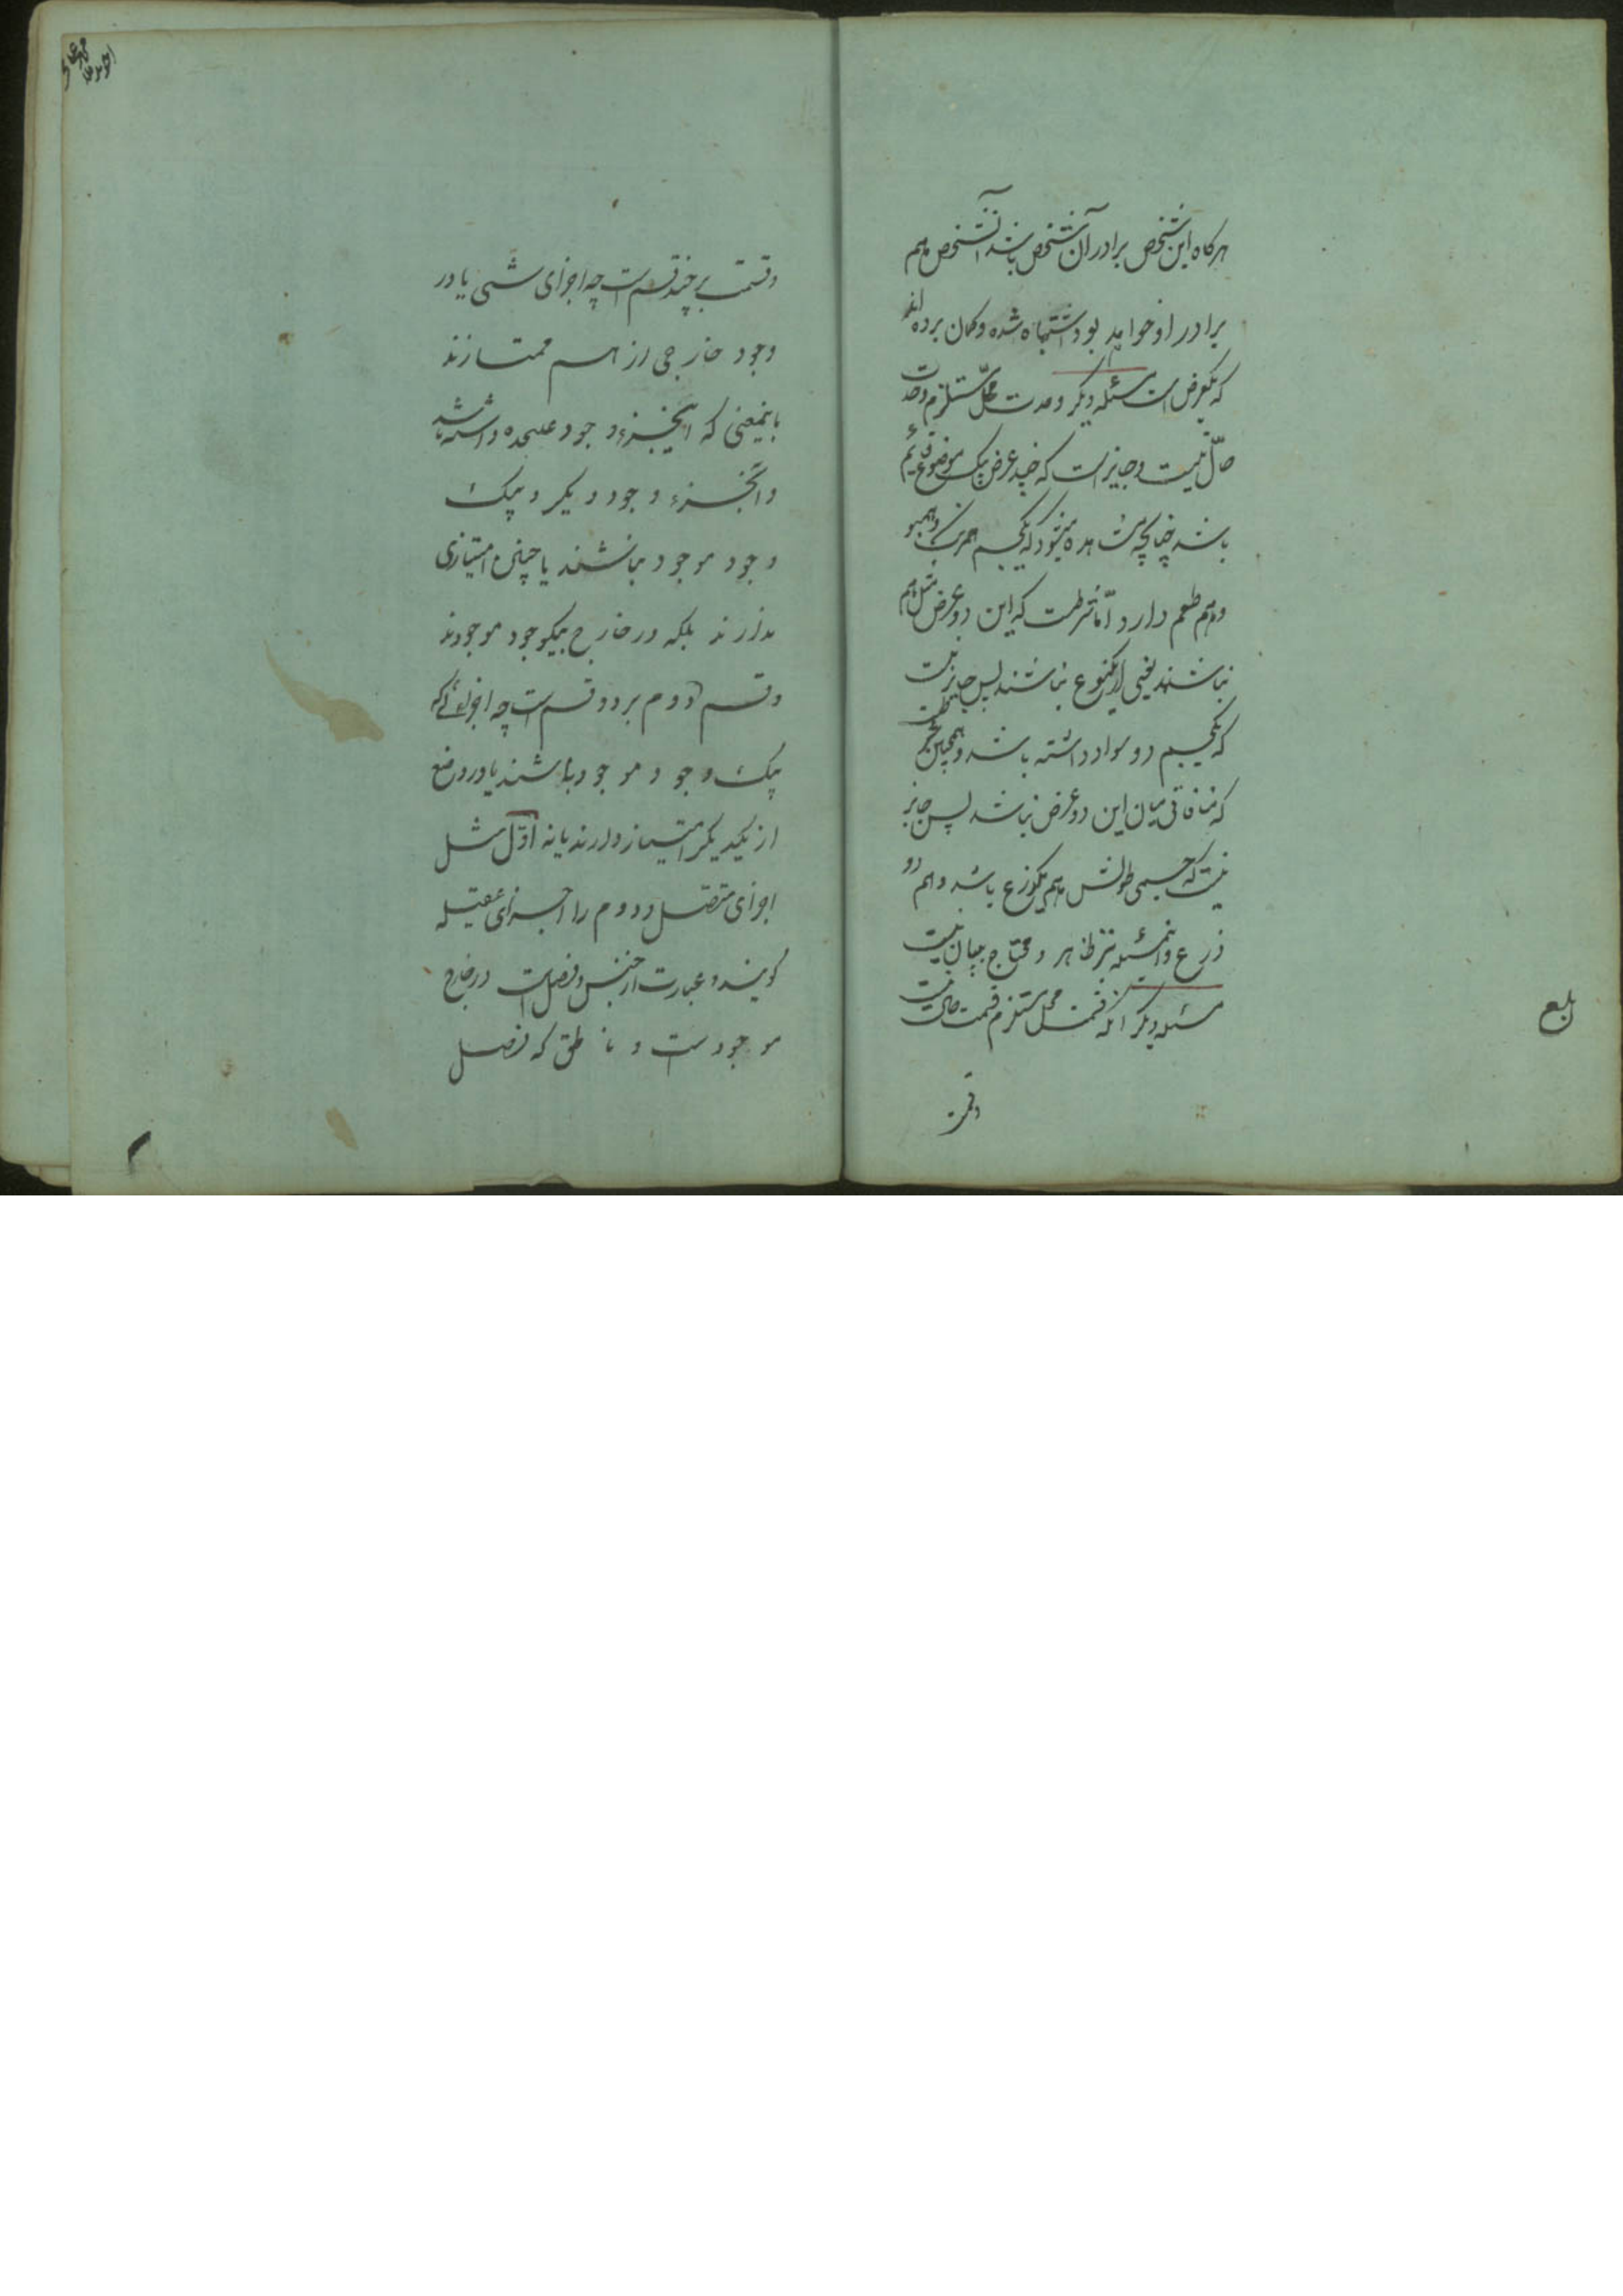 هرکاه این شخص برادر آن شخص باشد آنشخص هم
برادر او خواهد بود اشتباه شده و کمان برده اند
که یکعرض است مسئله دیکر وحدت محلّ مستلزم وحدت
حالّ نیست و جایز است که چند عرض بیک موضوع قائم
باشد چنانچه مشاهده میشود که یکجسم هم رنک و هم بو
و هم طعم دارد امّا شرطست که این دو عرض مثل هم
نباشند یعنی از یکنوع نباشند پس جایز نیست
که یکجسم دو سواد داشته باشد و همچنین شرطست
که منافاتی میان این دو عرض نباشد پس جایز
نیست که جسمی طولش هم یکذرع باشد و هم دو
ذرع و اینمسئله نیز ظاهر و محتاج ببیان نیست
مسئله دیکر آنکه قسمت محل مستلزم قسمت حالست
وقسمت
بلغ
وقسمت بر چند قسم است چه اجزای شئی یا در
وجود خارجی از هم ممتازند
باینمعنی که اینجزء وجود علیحده داشته باشد
و آنجزء وجود دیکر و بیک
وجود موجود نباشند یا چنین امتیازی
ندارند بلکه در خارج بیکوجود موجودند
وقسم دوم بر دو قسم است چه اجزائی که
بیک وجود موجود باشند یا در وضع
از یکدیکر امتیاز دارند یا نه اوّل مثل
اجزای متصل و دوم را اجزای عقلیه
کویند و عبارت از جنس و فصل است در خارج
موجود است و ناطق که فصل